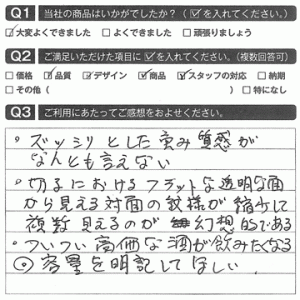 Q1 当社の商品はいかがでしたか？（☑を入れてください。）
☑大変よくできました □よくできました □頑張りましょう
Q2 ご満足いただけた項目に☑を入れてください。（複数回答可）
□価格 ☑品質 ☑デザイン ☑商品 ☑スタッフの対応 □納期
□その他（ ）□特になし
Q3 ご利用にあたってご感想をおよせください。
・ズッシリとした重み質感が
なんとも言えない
・切子におけるフラットな透明な面
から見える対面の紋様が縮小して
複数見えるのが幻想的である
・ついつい高価な酒が飲みたくなる
◎容量を明記してほしい。